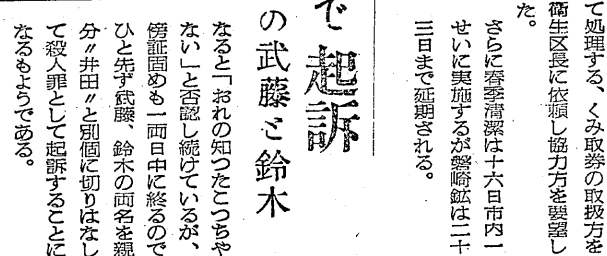 て処理する、くみ取券の取扱方を
衛生区長に依頼し協力方を要望し
た。
さらに春季清潔は十六日市内一
せいに実施するが磐崎鉱は二十
三日まで延期される。
で起訴
の武藤と鈴木
なると「おれの知つたこつちや
ない」と否認し続けているが、
傍証固めも一両日中に終るので
ひと先ず武藤、鈴木の両名を親
分〃井田〃と別個に切りはなし
て殺人罪として起訴することに
なるもようである。